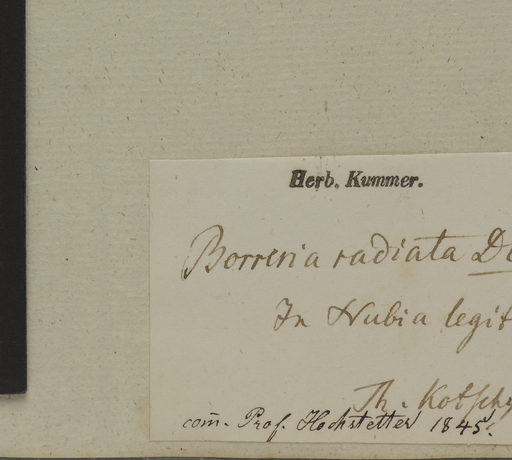 Herb. Kummer.
Borreria radiata D
In Nubia legit
Th. Kotschy
com̄. Prof. Hochstetter 1845.